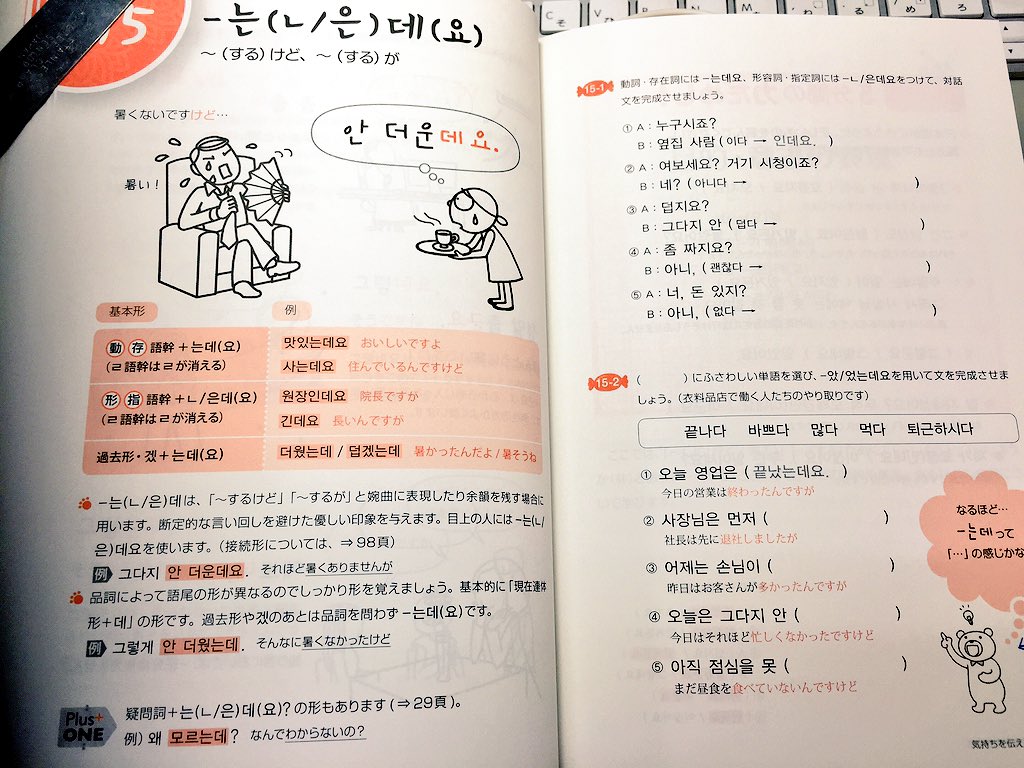 15
-는(ㄴ/은)데(요)
～(する)けど、～(する)が
暑くないですけど…
안 더운데요.
暑い！
基本形
例
動 存 語幹＋는데(요)
(ㄹ語幹はㄹが消える)
맛있는데요 おいしいですよ
사는데요 住んでいるんですけど
形 指 語幹＋ㄴ/은데(요)
(ㄹ語幹はㄹが消える)
원장인데요 院長ですが
긴데요 長いんですが
過去形・겠＋는데(요)
더웠는데 / 덥겠는데 暑かったんだよ / 暑そうね
-는(ㄴ/은)데は、「～するけど」「～するが」と婉曲に表現したり余韻を残す場合に
用います。断定的な言い回しを避けた優しい印象を与えます。目上の人には-는(ㄴ/
은)데요を使います。(接続形については、⇒98頁)
例 그다지 안 더운데요. それほど暑くありませんが
品詞によって語尾の形が異なるのでしっかり形を覚えましょう。基本的に「現在連体
形＋데」の形です。過去形や겠のあとは品詞を問わず-는데(요)です。
例 그렇게 안 더웠는데. そんなに暑くなかったけど
Plus+
ONE
疑問詞＋는(ㄴ/은)데(요)? の形もあります(⇒29頁)。
例) 왜 모르는데? なんでわからないの？
15-1
動詞・存在詞には-는데요、形容詞・指定詞には-ㄴ/은데요をつけて、対話
文を完成させましょう。
① A：누구시죠?
B：옆집 사람(이다 → 인데요. )
② A：여보세요? 거기 시청이죠?
B：네? (아니다 → )
③ A：덥지요?
B：그다지 안 (덥다 → )
④ A：좀 짜지요?
B：아니, (괜찮다 → )
⑤ A：너, 돈 있지?
B：아니, (없다 → )
15-2
( )にふさわしい単語を選び、-았/었는데요を用いて文を完成させま
しょう。(衣料品店で働く人たちのやり取りです)
끝나다 바쁘다 많다 먹다 퇴근하시다
① 오늘 영업은 ( 끝났는데요. )
今日の営業は終わったんですが
② 사장님은 먼저 ( )
社長は先に退社しましたが
③ 어제는 손님이 ( )
昨日はお客さんが多かったんですが
④ 오늘은 그다지 안 ( )
今日はそれほど忙しくなかったですけど
⑤ 아직 점심을 못 ( )
まだ昼食を食べていないんですけど
なるほど…
-는데って
「…」の感じかな
気持ちを伝え